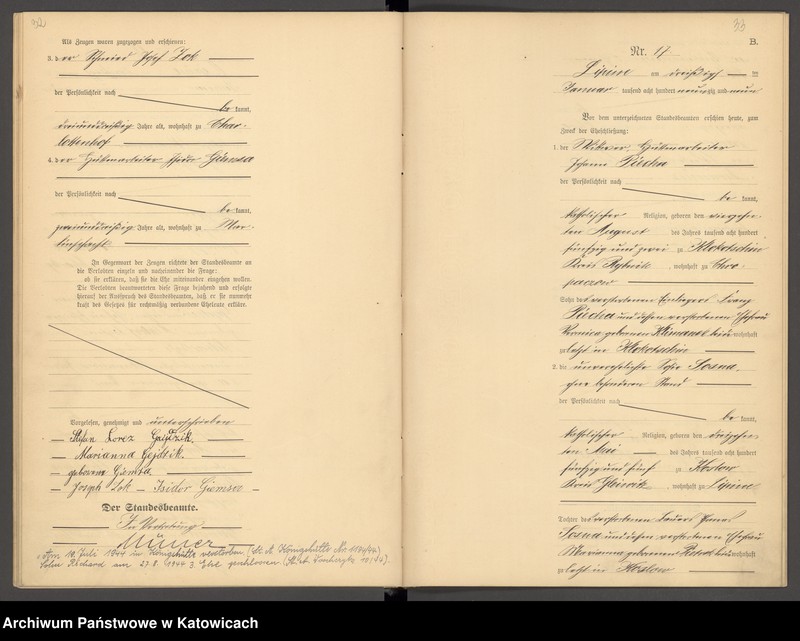 32
Als Zeugen waren zugezogen und erschienen:
3. der Schmied Josef Lok
der Persönlichkeit nach
be kannt,
dreiunddreißig Jahre alt, wohnhaft zu Char-
lottenhof
4. der Hüttenarbeiter Isidor Giemsa
der Persönlichkeit nach
be kannt,
zweiunddreißig Jahre alt, wohnhaft zu Mar-
tinschacht.
In Gegenwart der Zeugen richtete der Standesbeamte an
die Verlobten einzeln und nacheinander die Frage:
ob sie erklären, daß sie die Ehe miteinander eingehen wollen.
Die Verlobten beantworteten diese Frage bejahend und erfolgte
hierauf der Ausspruch des Standesbeamten, daß er sie nunmehr
kraft des Gesetzes für rechtmäßig verbundene Eheleute erkläre.
Vorgelesen, genehmigt und unterschrieben
Stefan Lorenz
Marianna
geborene Giemsa
Joseph Lok – Isidor Giemsa
Der Standesbeamte.
In Vertretung
Am 10. Juli 1944 in Königshütte verstorben (St. A. Königshütte Nr.
Sohn Richard am 27.8.1944 3. Ehe geschlossen
33
B.
Nr. 14
Lipine am dreißigsten ten
Januar tausend acht hundert neunzig und neun
Vor dem unterzeichneten Standesbeamten erschien heute, zum
Zweck der Eheschließung:
1. der Witwer, Hüttenarbeiter
Johann Piecha
der Persönlichkeit nach
be kannt,
katholischer Religion, geboren den vierzehn-
ten August des Jahres tausend acht hundert
fünfzig und zwei zu Klokotschin
Kreis Rybnik, wohnhaft zu Chro-
paczow
Sohn des verstorbenen Einliegers Franz
Piecha und dessen verstorbenen Ehefrau
geborenen beide wohnhaft
zuletzt in Klokotschin
2. die unverehelichte Sofie Sosna,
ohne besonderen Stand
der Persönlichkeit nach
be kannt,
katholischer Religion, geboren den dreizehn-
ten Mai des Jahres tausend acht hundert
fünfzig und fünf zu Koslow
Kreis Gleiwitz, wohnhaft zu Lipine
Tochter des verstorbenen Bauers
Sosna und dessen verstorbenen Ehefrau
Marianna geborenen beide wohnhaft
zuletzt in Koslow
Archiwum Państwowe w Katowicach